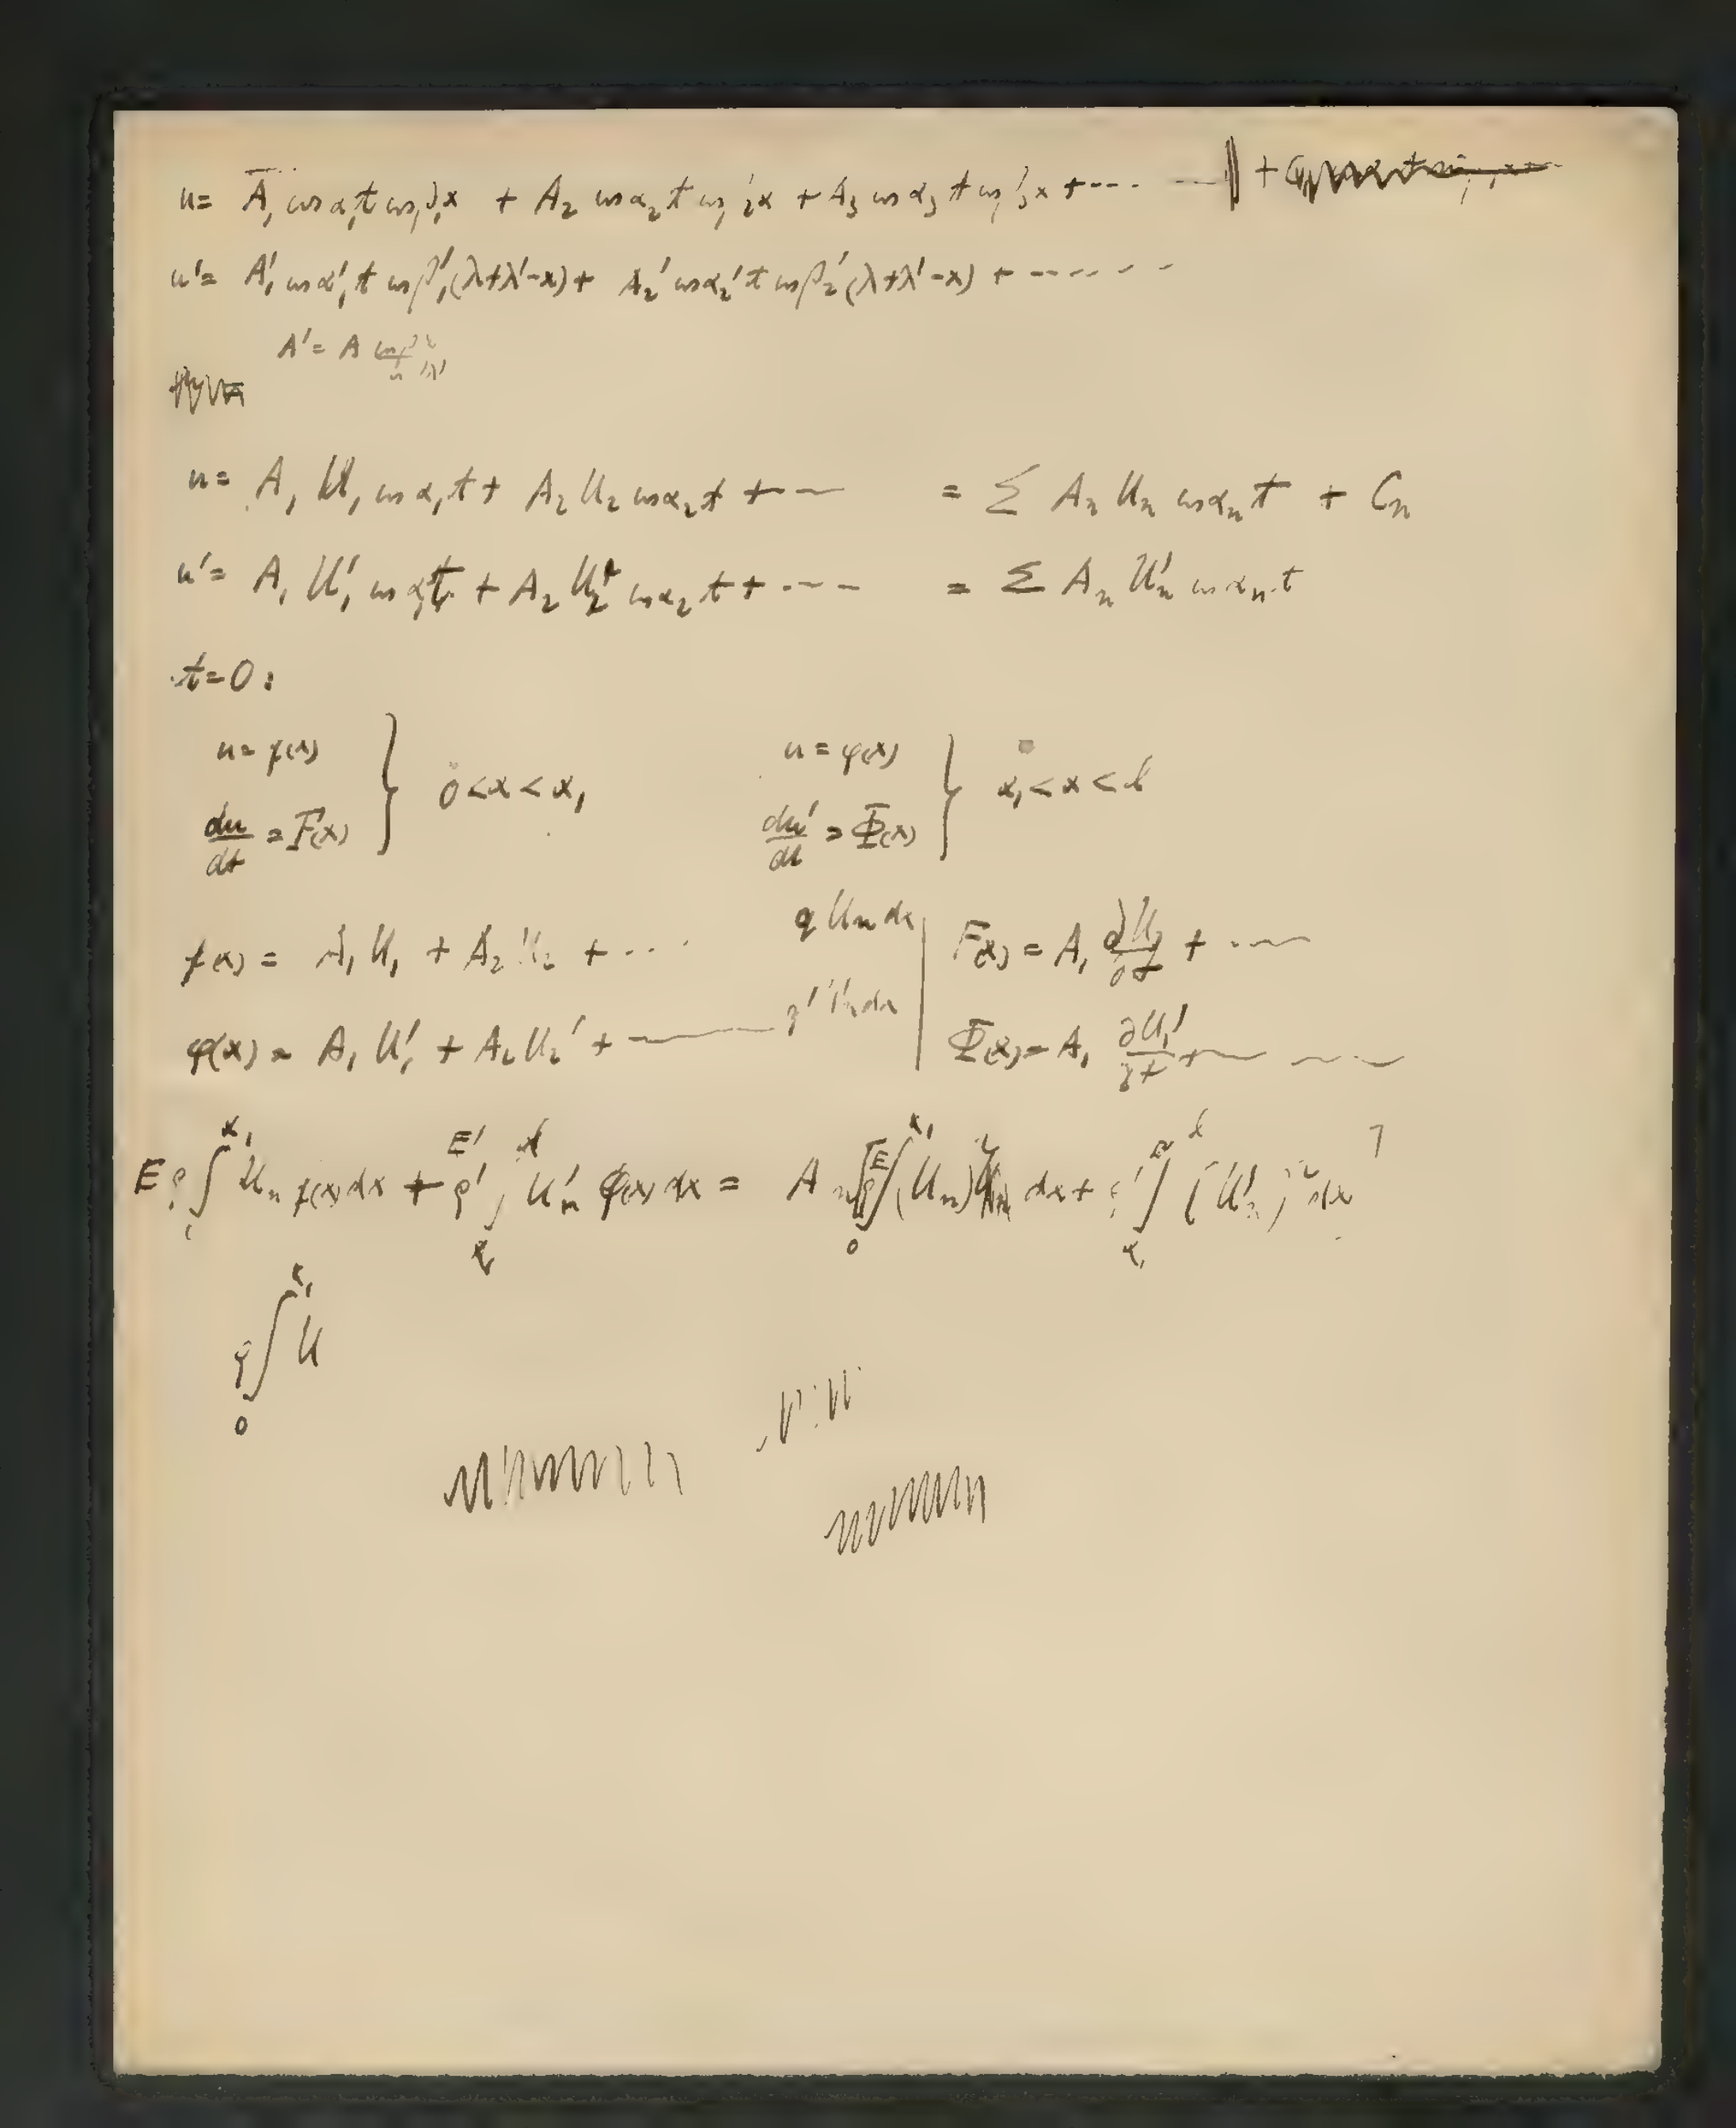 u = A₁ cos α₁t cos β₁x + A₂ cos α₂t cos β₂x + A₃ cos α₃t cos β₃x + ····
u' = A₁' cos α₁'t cos β₁'(λ+λ'-x) + A₂' cos α₂'t cos β₂'(λ+λ'-x) + ------
A' = A cos
u = A₁ U₁ cos α₁t + A₂ U₂ cos α₂t + -- = Σ Aₙ Uₙ cos αₙt + Cₙ
u' = A₁ U₁' cos α₁t + A₂ U₂' cos α₂t + ---- = Σ Aₙ Uₙ' cos αₙt
t=0:
u = f(x) } 0<x<x₁ u = φ(x) } x₁<x<l
du/dt = F(x) du'/dt = Φ(x)
f(x) = A₁ U₁ + A₂ U₂ + ···· ϱ Uₙ dx | F(x) = A₁ ∂U₁/∂t + ----
φ(x) = A₁ U₁' + A₂ U₂' + ---- ϱ' Uₙ' dx | Φ(x) = A₁ ∂U₁'/∂t + ----
E ϱ ∫ x₁ Uₙ f(x) dx + E' ϱ' ∫ₓ₁ˡ Uₙ' φ(x) dx = Aₙ [E ϱ ∫₀ˣ¹ (Uₙ)² dx + ϱ' ∫ₓ₁ˡ (Uₙ')² dx]
ϱ ∫₀ˣ¹ U